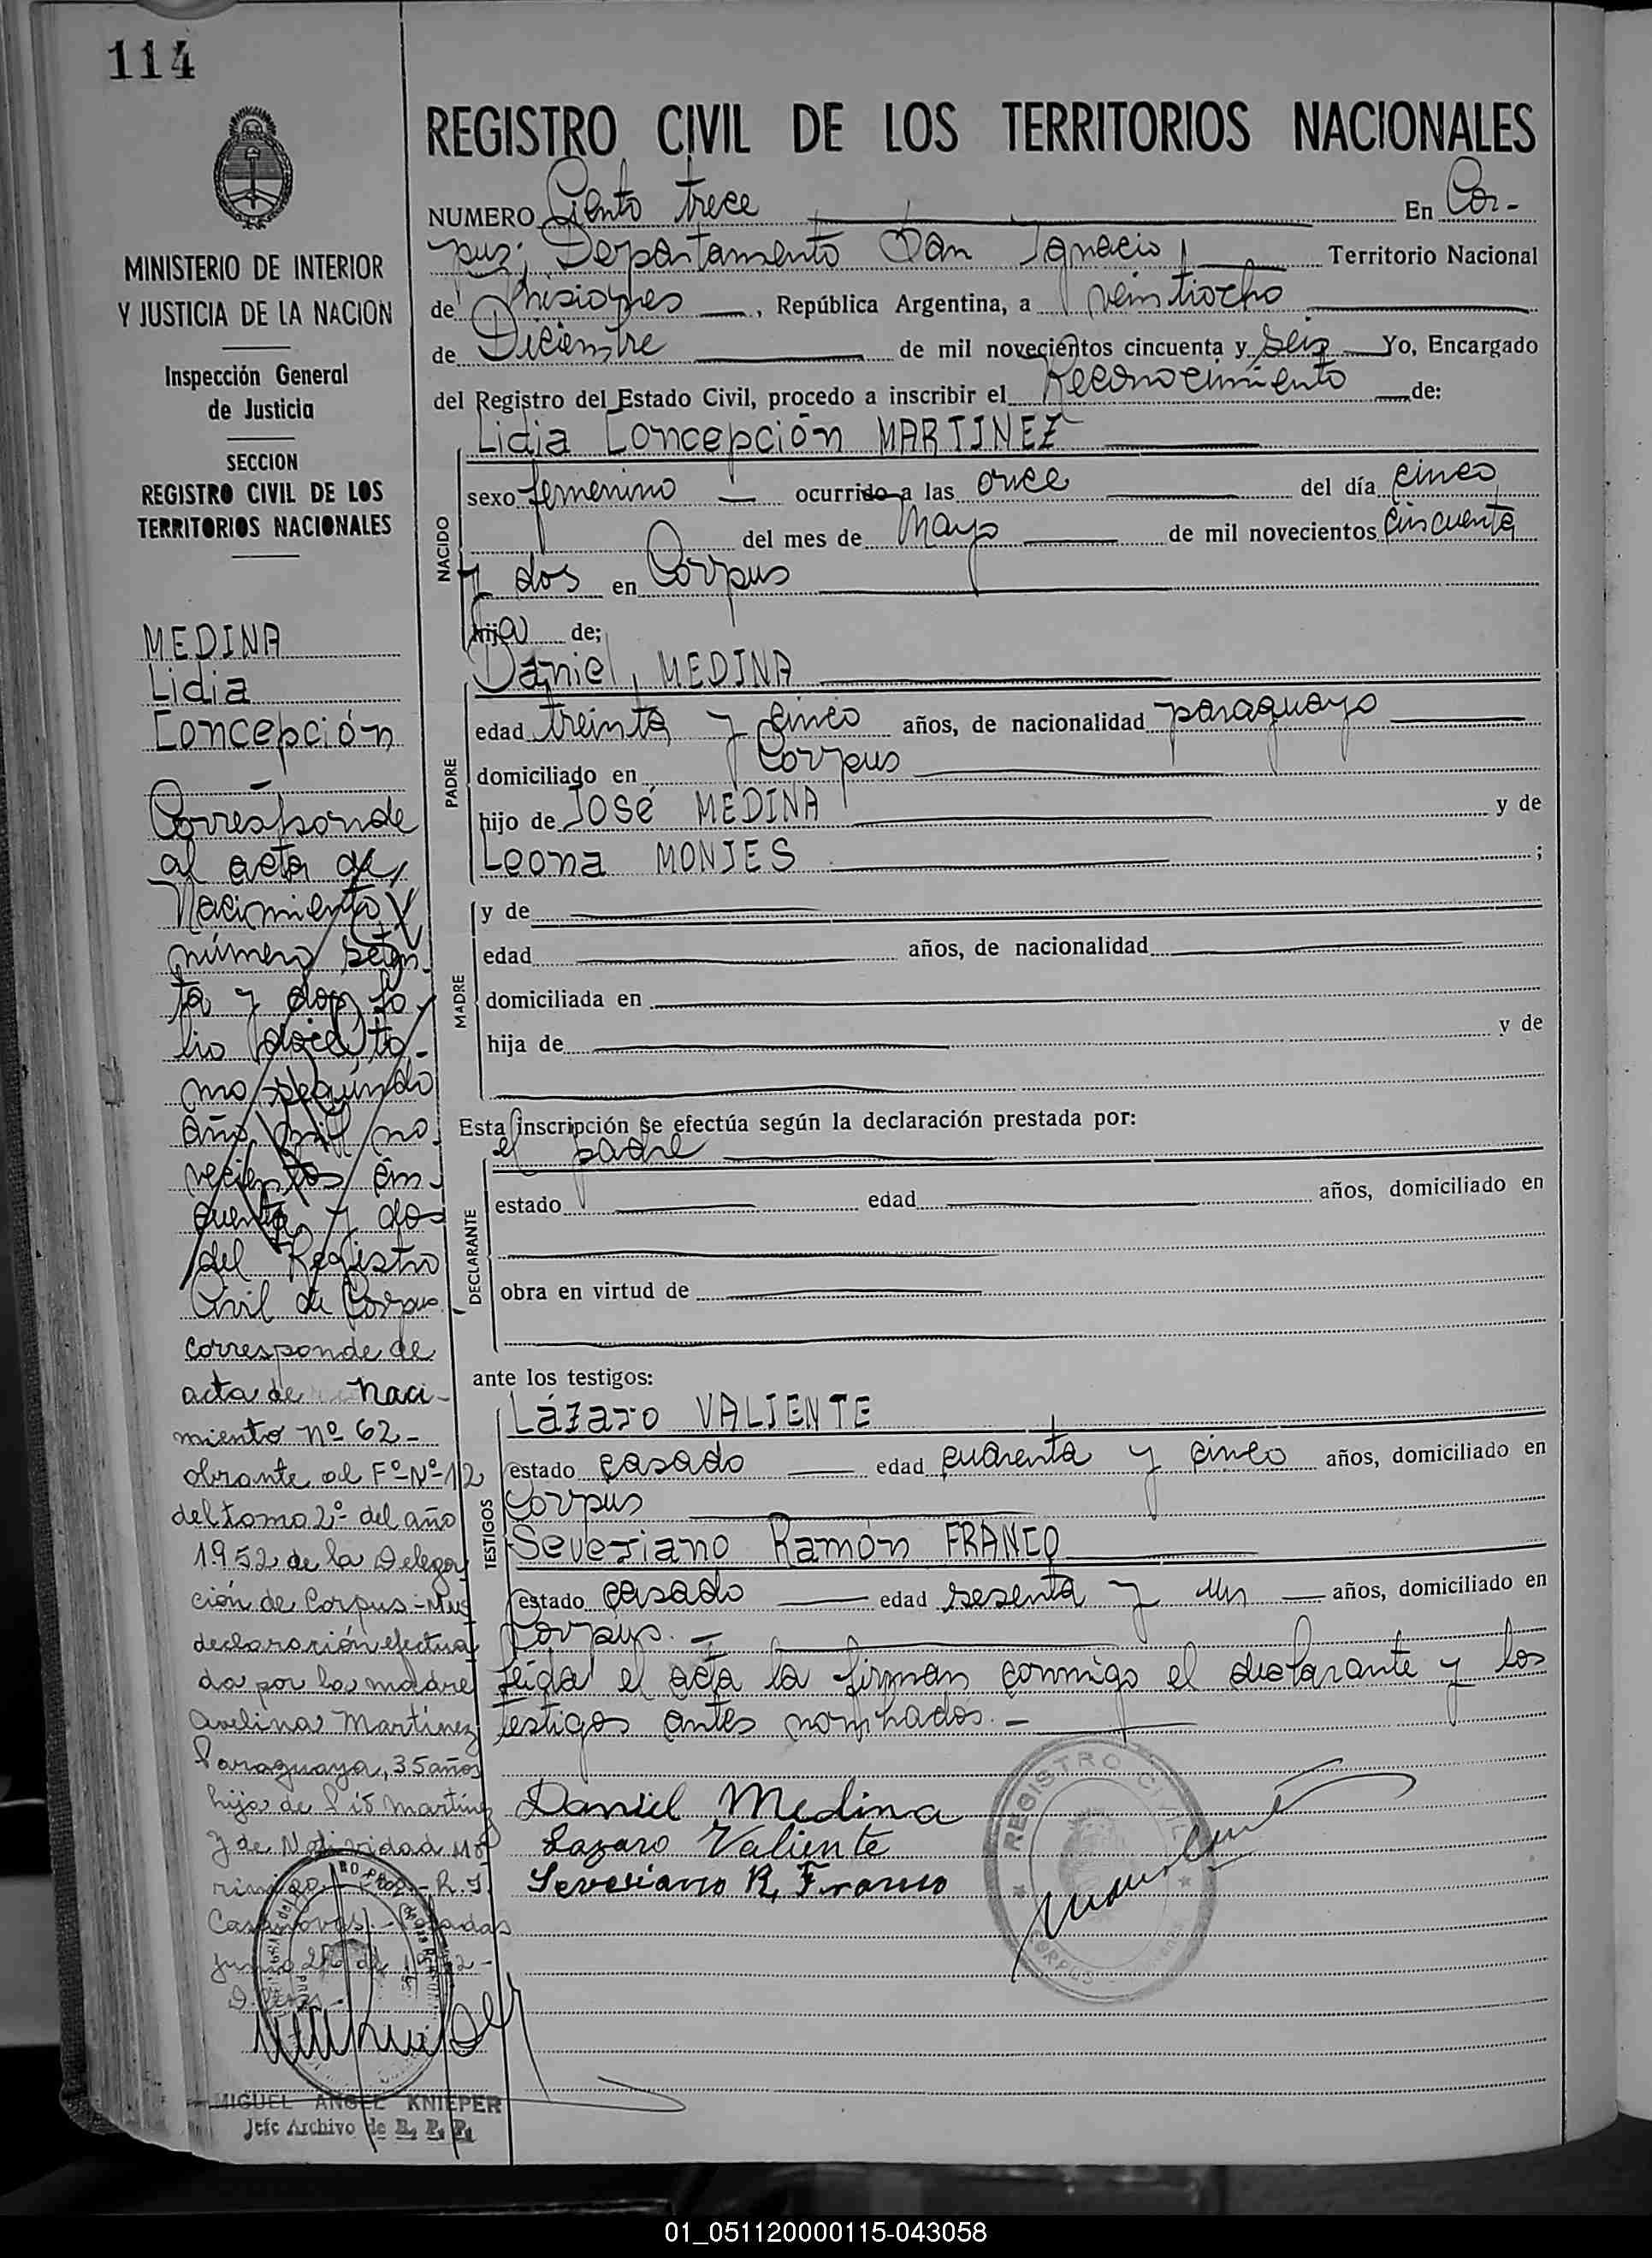 114
REGISTRO CIVIL DE LOS TERRITORIOS NACIONALES
MINISTERIO DE INTERIOR
Y JUSTICIA DE LA NACION
Inspección General
de Justicia
SECCION
REGISTRO CIVIL DE LOS
TERRITORIOS NACIONALES
MEDINA
Lidia
Concepción
Corresponde
al acta de
Nacimiento
número seten-
ta y dos fo-
lio doce to-
mo segundo
año mil no-
vecientos cin-
cuenta y dos
del Registro
Civil de Corpus
corresponde de
acta de naci-
miento nº 62-
obrante al Fº-Nº-12
del tomo 2º- del año
1952 de la Delega
ción de Corpus-Mns
declaración efectua
da por la madre
Avelina Martinez
Paraguaya, 35 años
hija de Pio Martinz
y de Natividad Mo
R.J.
Casanovas.- Posadas
Junio de
MIGUEL ANGEL KNIEPER
Jefe Archivo de R. P. P.
NUMERO Ciento trece En Cor-
pus; Departamento San Ignacio, Territorio Nacional
de Misiones, República Argentina, a veintiocho
de Diciembre de mil novecientos cincuenta y seis Yo, Encargado
del Registro del Estado Civil, procedo a inscribir el Reconocimiento de:
Lidia Concepción MARTINEZ
NACIDO
sexo femenino ocurrido a las once del día cinco
del mes de Mayo de mil novecientos cincuenta
y dos en Corpus
hija de;
Daniel, MEDINA
PADRE
edad treinta y cinco años, de nacionalidad paraguayo
domiciliado en Corpus
hijo de José MEDINA y de
Leona MONJES ;
MADRE
y de
edad años, de nacionalidad
domiciliada en
hija de y de
Esta inscripción se efectúa según la declaración prestada por:
el padre
DECLARANTE
estado edad años, domiciliado en
obra en virtud de
ante los testigos:
TESTIGOS
Lázaro VALIENTE
estado casado edad cuarenta y cinco años, domiciliado en
Corpus
Severiano Ramón FRANCO
estado casado edad sesenta y un años, domiciliado en
Corpus.-
leída el acta la firman conmigo el declarante y los
testigos antes nombrados.-
Daniel Medina
Lazaro Valiente
Severiano R, Franco
REGISTRO CIVIL
CORPUS
01_051120000115-043058